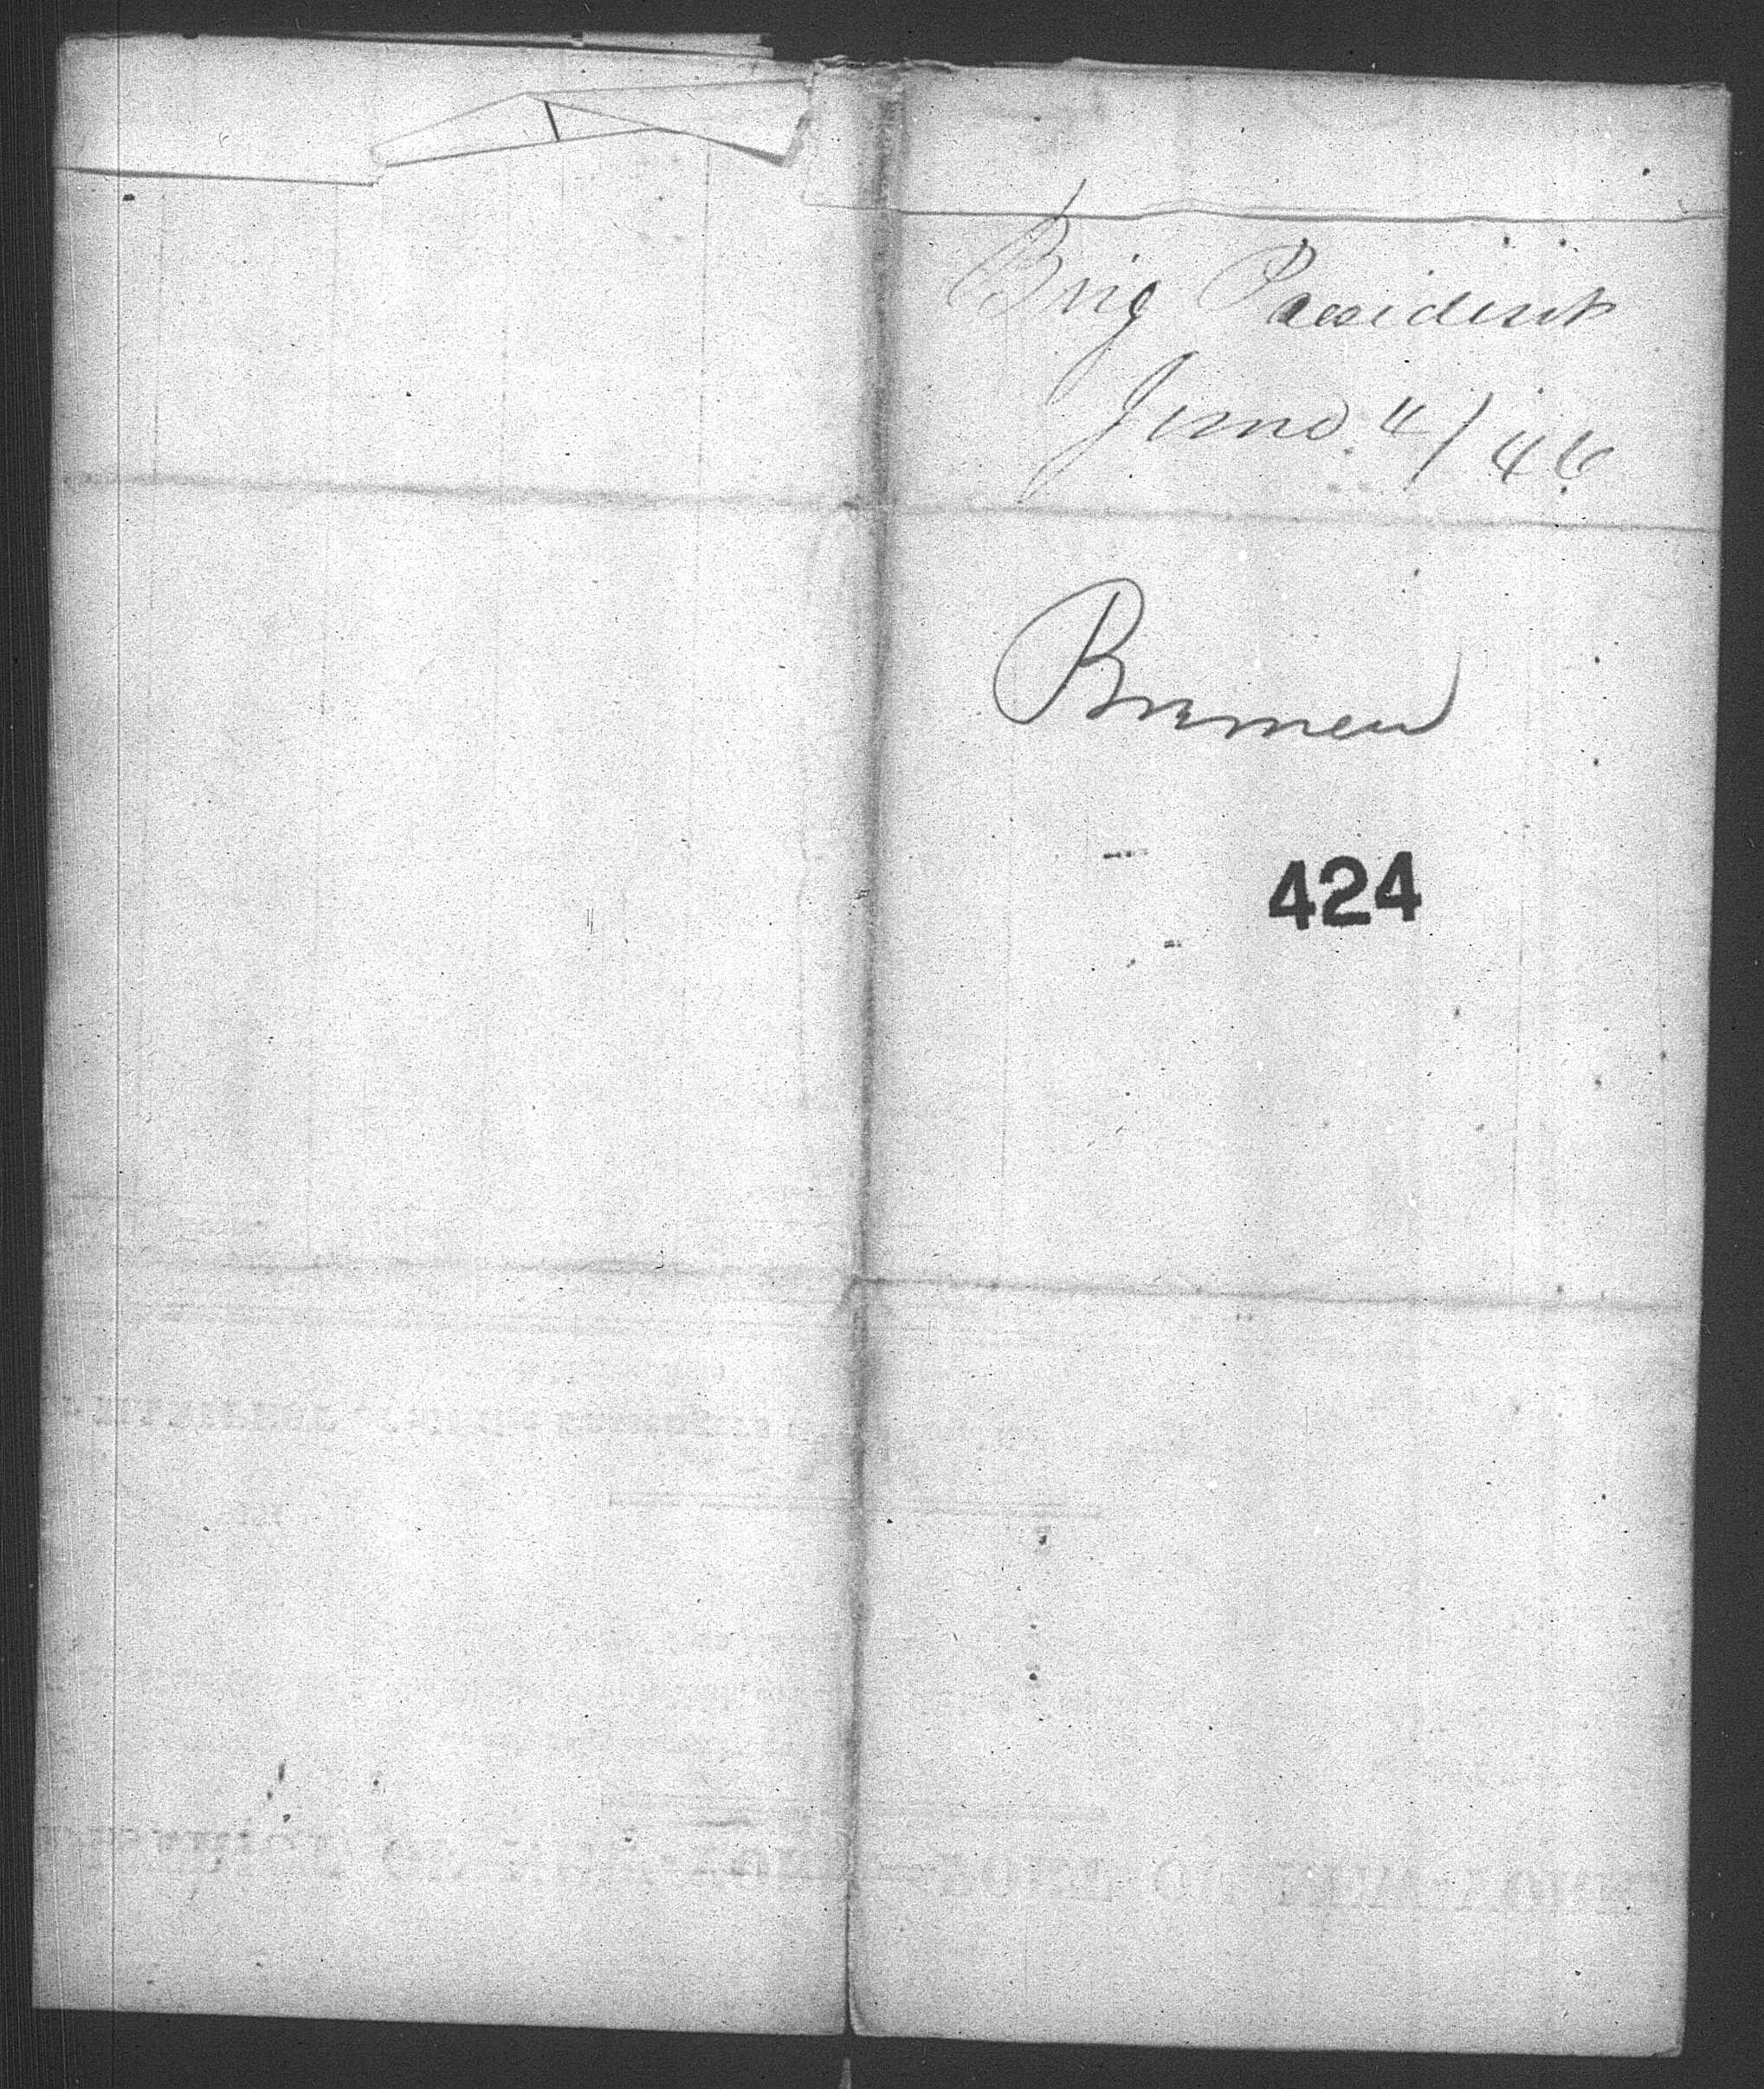 Brig President
June 4/46
Bremen
424